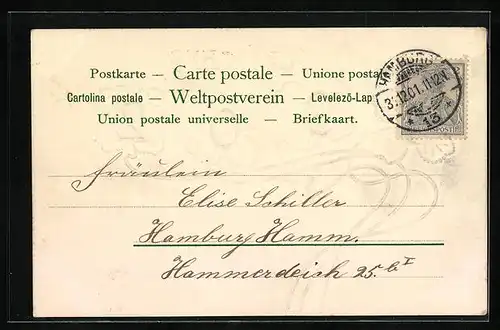 Postkarte — Carte postale — Unione postale
Cartolina postale — Weltpostverein — Levelező-Lap
Union postale universelle — Briefkaart.
HAMBURG
3.12.01. 11-12 V.
* 13 *
Fräulein
Elise Schiller
Hamburg Hamm.
Hammerdeich 25. b I